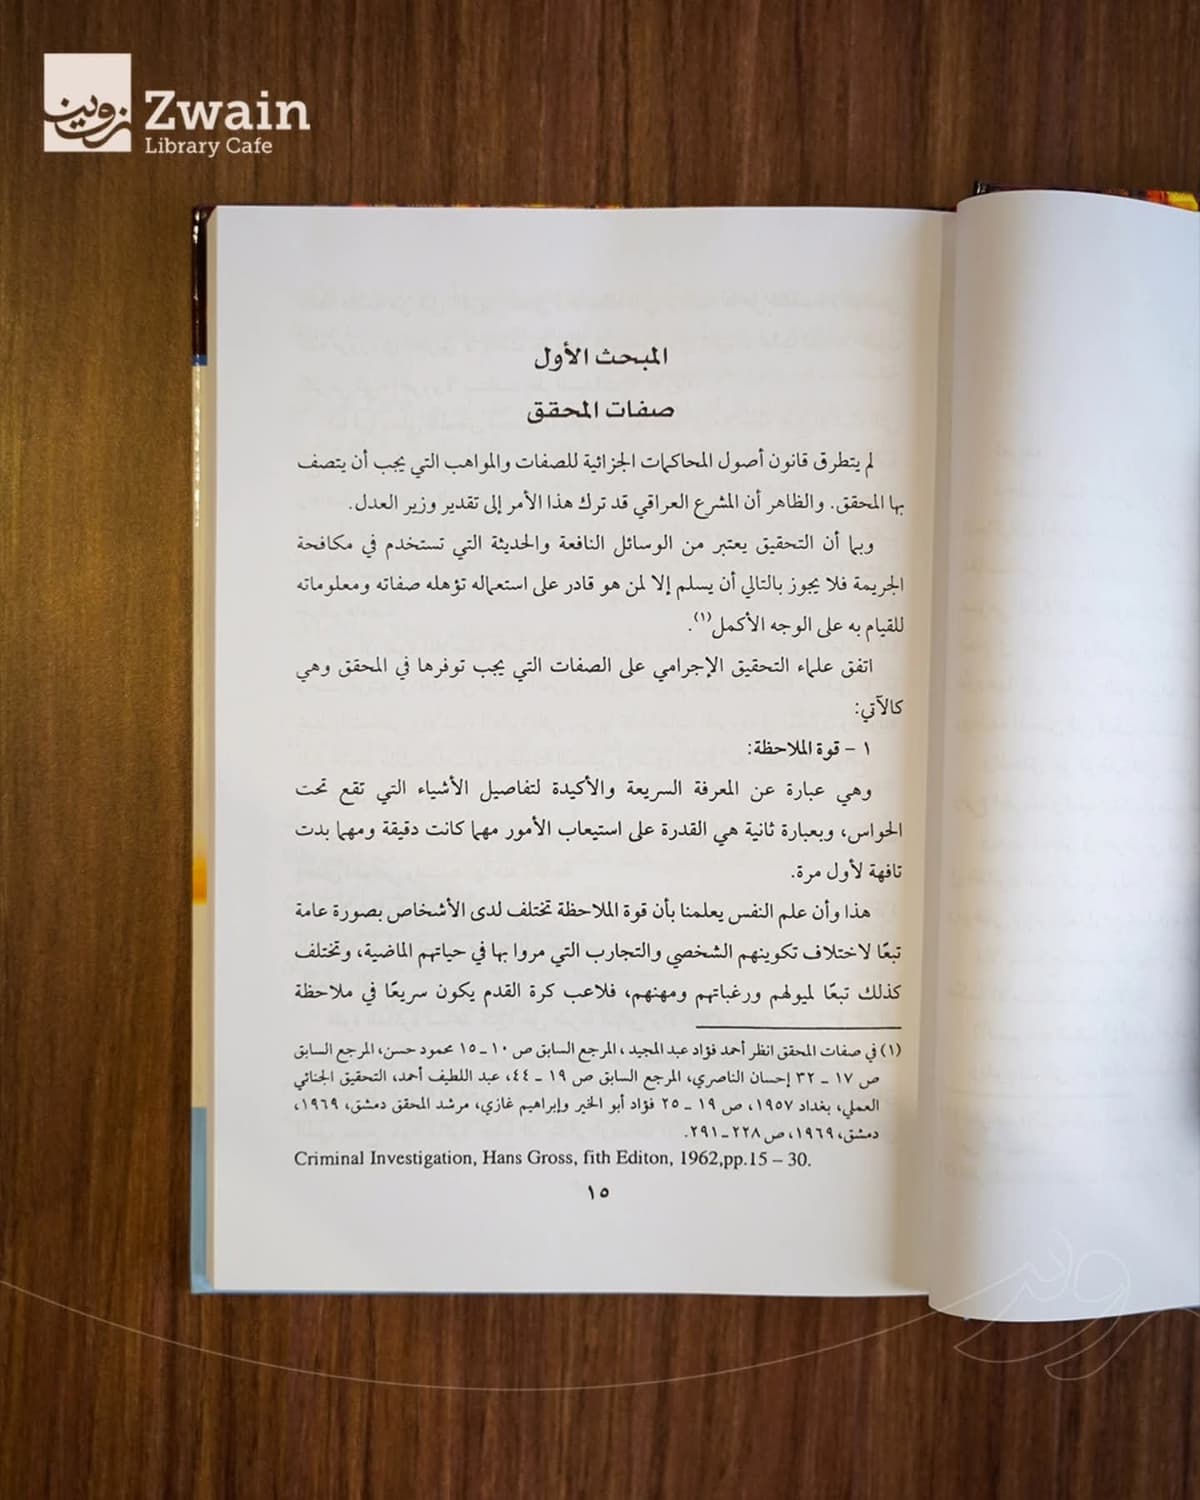 زوين
Zwain
Library Cafe
المبحث الأول
صفات المحقق
لم يتطرق قانون أصول المحاكمات الجزائية للصفات والمواهب التي يجب أن يتصف
بها المحقق. والظاهر أن المشرع العراقي قد ترك هذا الأمر إلى تقدير وزير العدل.
وبما أن التحقيق يعتبر من الوسائل النافعة والحديثة التي تستخدم في مكافحة
الجريمة فلا يجوز بالتالي أن يسلم إلا لمن هو قادر على استعماله تؤهله صفاته ومعلوماته
للقيام به على الوجه الأكمل(١).
اتفق علماء التحقيق الإجرامي على الصفات التي يجب توفرها في المحقق وهي
كالآتي:
١ – قوة الملاحظة:
وهي عبارة عن المعرفة السريعة والأكيدة لتفاصيل الأشياء التي تقع تحت
الحواس، وبعبارة ثانية هي القدرة على استيعاب الأمور مهما كانت دقيقة ومهما بدت
تافهة لأول مرة.
هذا وأن علم النفس يعلمنا بأن قوة الملاحظة تختلف لدى الأشخاص بصورة عامة
تبعًا لاختلاف تكوينهم الشخصي والتجارب التي مروا بها في حياتهم الماضية، وتختلف
كذلك تبعًا لميولهم ورغباتهم ومهنهم، فلاعب كرة القدم يكون سريعًا في ملاحظة
(١) في صفات المحقق انظر أحمد فؤاد عبد المجيد، المرجع السابق ص ١٠ ـ ١٥ محمود حسن، المرجع السابق
ص ١٧ ـ ٣٢ إحسان الناصري، المرجع السابق ص ١٩ ـ ٤٤، عبد اللطيف أحمد، التحقيق الجنائي
العملي، بغداد ١٩٥٧، ص ١٩ ـ ٢٥ فؤاد أبو الخير وإبراهيم غازي، مرشد المحقق دمشق، ١٩٦٩،
دمشق، ١٩٦٩، ص ٢٢٨ ـ ٢٩١.
Criminal Investigation, Hans Gross, fith Editon, 1962,pp.15 – 30.
١٥